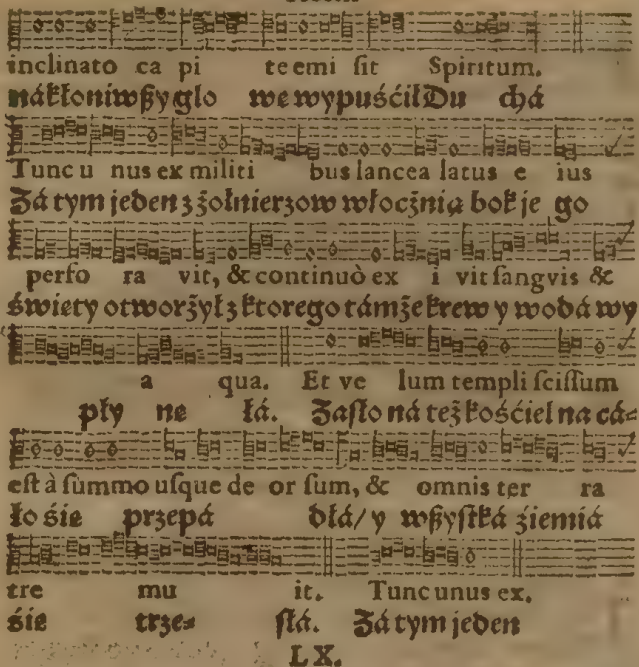 inclinato ca pi te emi ſit Spiritum.
nákłoniwßy glo we wypuśćił Du chá
Tunc u nus ex militi bus lancea latus e ius
Zá tym jeden z żołnierzow włocżnią bok je go
perfo ra vit, & continuò ex i vit ſangvis &
świety otworżył z ktorego támże krew y wodá wy
a qua. Et ve lum templi ſciſſum
pły ne łá. Zaſło ná też kośćiel na cá=
eſt à ſummo uſque de or ſum, & omnis ter ra
ło śie przepá dłá/ y wßyſtká źiemiá
tre mu it. Tunc unus ex.
śie trze= ſłá. Zá tym jeden
LX.